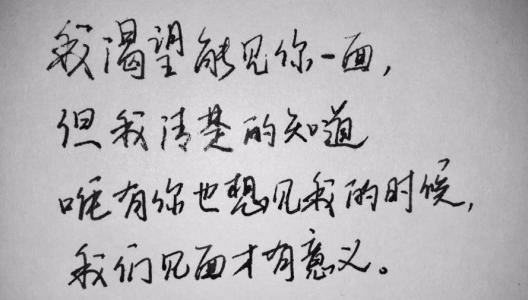 我渴望能见你一面,
但我清楚的知道
唯有你也想见我的时候,
我们见面才有意义。